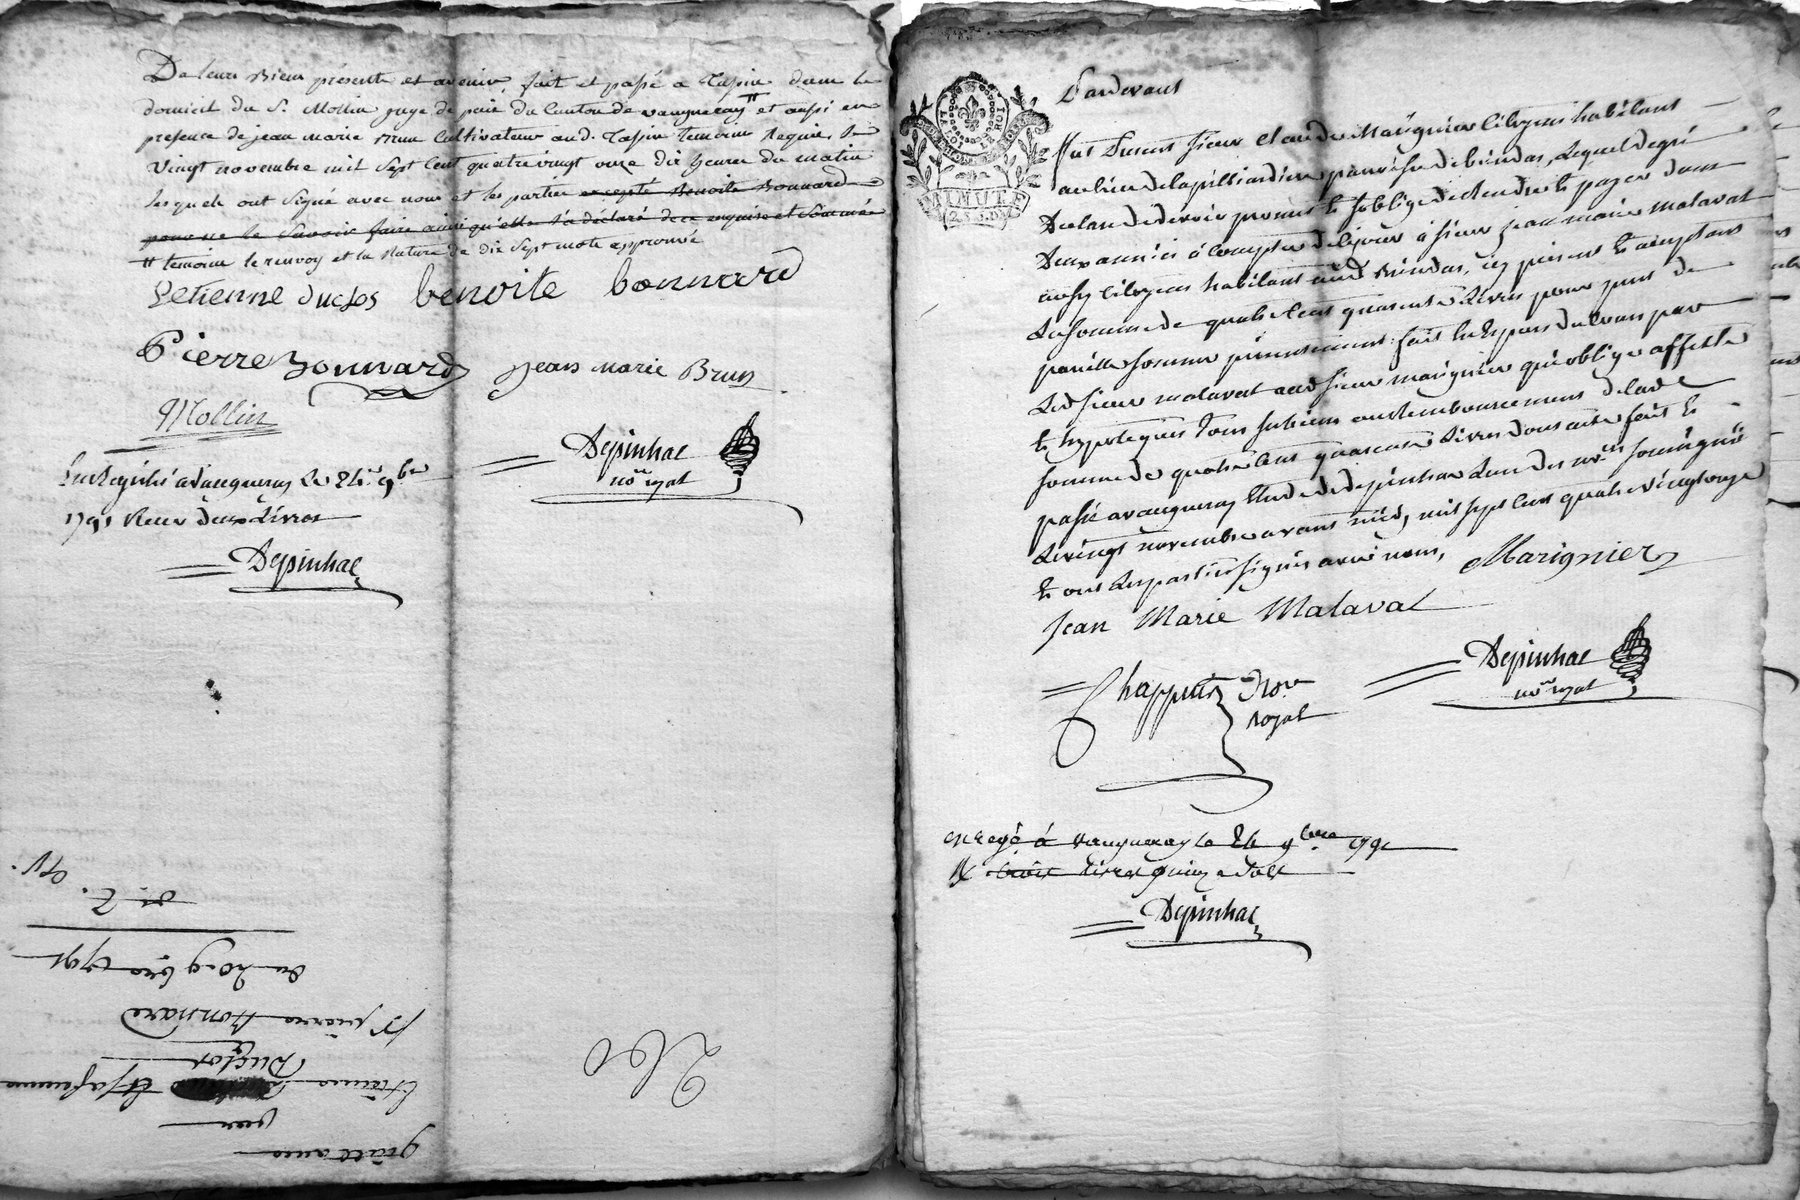 De leurs Biens présents et avenir, fait et passé a Tassin dans le
domicil du S. Mollin juge de paix du Canton de vaugneray # et aussi en
présence de jean marie Brun Cultivateur aud. Tassin temoins Requis, le
Vingt novembre mil Sept Cent quatre vingt onze dix heures du matin
lesquels ont Signé avec nous et les parties excepté Benoite Bonnard
pour ne le Savoir faire ainsi qu'elle l'a déclaré de ce enquise et Sommée
# temoins le renvoy et la Rature de dix Sept mots approuvée
Letienne duclos benoite bonnard
Pierre Bonnard Jean Marie Brun
Mollin
Depinhac
no.re royal
Enregistré a Vaugneray Le 24 9bre
1791 Reçu deux Livres
Depinhac
260
quittance
par
Etienne et sa femme
Duclos
Sr. pierre Bonnard
du 20. 9bre 1791
Pardevant
MINUTE
LA LOI ET LE ROI
fut present sieur Claude Marignier Citoyen habitant
au lieu de la pilliardiere parroisse de brindas, Lequel de gré
Declare devoir promet et s'oblige de rendre et payer dans
Deux années à Compter de ce jour à sieur jean marie malaval
aussy Citoyen habitant aud. Brindas, icy présent et acceptant
La somme de quatre Cent quarante Livres pour prest de
pareille somme présentement fait en Espèces de Cours par
Led. sieur malaval aud. sieur marignier qui oblige affecte
et hypoteque tous ses biens au Remboursement de lad.
somme de quatre Cent quarante Livres dont acte fait et
passé a vaugneray Etude de depinhac L'un des no.res soussignés
Le vingt novembre avant midy mil sept Cent quatre vingt onze
et ont Les parties signés avec nous, Marignier
Jean Marie Malaval
Chappuis Nore
Royal
Depinhac
no.re royal
enregé à vaugneray le 24 9bre 1791
R. trois livres quinze sols
Depinhac